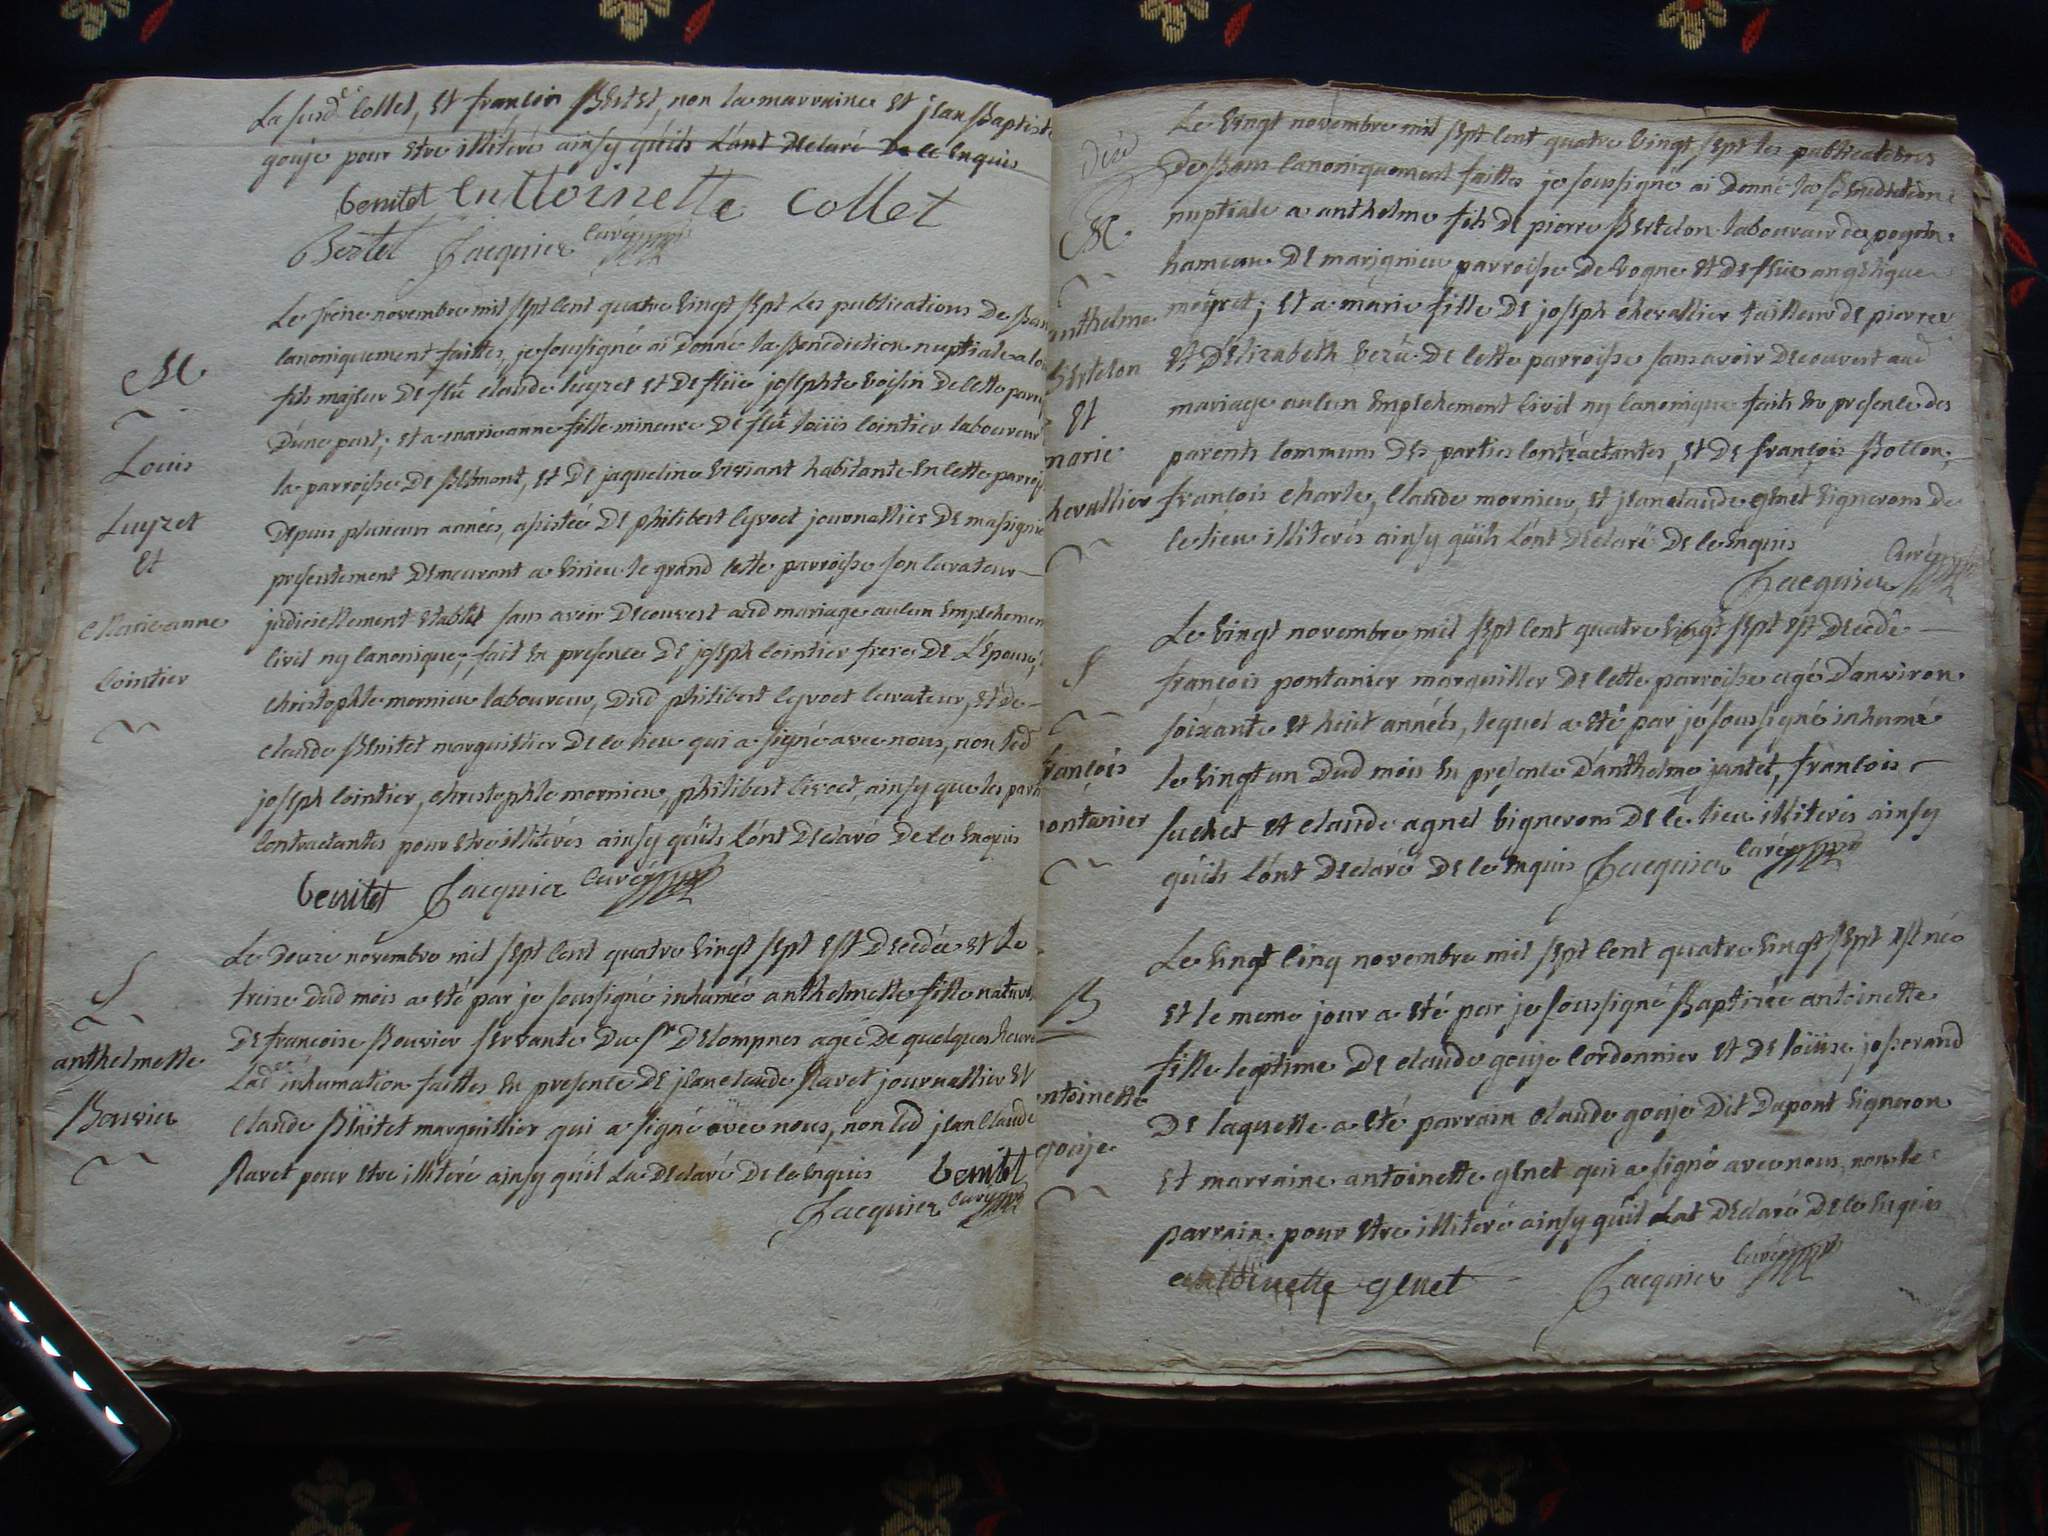 La susd.e Collet, et françois Bertet, non la marraine et jean Baptiste
gouje pour etre illiterés ainsy qu'ils l'ont declaré de ce enquis
benitet enttoinette collet
Bertet Jacquier curé
Le treize novembre mil sept cent quatre vingt sept les publications de Ban
canoniquement faittes, je soussigné ai donné la Benediction nuptiale a lou
fils majeur de feu claude luyzet et de feüe josephte voisin de cette parr
d'une part; et a marieanne fille mineure de feu loüis cointier laboureur
la parroisse de Belmont, et de jaqueline viviant habitante en cette parroi
depuis plusieurs années, assistée de philibert cyvoct journallier de massignie
presentement demeurant a virieu le grand cette parroisse son curateur
judiciellement etablit sans avoir decouvert aud mariage aucun empechemen
civil ny canonique; fait en presence de joseph cointier frere de l'epouse,
christophle mornieu laboureur, dud philibert cyvoct curateur, et de
claude Benitet marguillier de ce lieu qui a signé avec nous, non led
joseph cointier, christophle mornieu, philibert civoct, ainsy que les parti
contractantes pour etre illiterés ainsy qu'ils l'ont declaré de ce enquis
benitet Jacquier curé
M
Louis
Luyzet
et
Marieanne
Cointier
Le douze novembre mil sept cent quatre vingt sept est decedée et le
treize dud mois a eté par je soussigné inhumée anthelmette fille naturel
de francoise Bouvier servante du sr delompnes agée de quelques heure
Lad inhumation faittes en presence de jeanclaude Ravet journallier et
claude Benitet marguillier qui a signé avec nous, non led jean claude
Ravet pour etre illiteré ainsy qu'il la declaré de ce enquis benitet
Jacquier curé
S
anthelmette
Bouvier
Le vingt novembre mil sept cent quatre vingt sept les publications
de Bans canoniquement faittes je soussigné ai donné la Benediction
nuptiale a anthelme fils de pierre Bertelon laboureur de pogoin
hameau de marignieu parroisse de vogne et de feüe angelique
meyret; et a marie fille de joseph chevallier tailleur de pierre
et d'elizabeth de cette parroisse sans avoir decouvert aud
mariage aucun empechement civil ny canonique fait en presence des
parents communs des parties contractantes, et de françois Bollon,
françois charle, claude mornieu, et jeanclaude genet vignerons de
ce lieu illiterés ainsy qu'ils l'ont declaré de ce enquis
Jacquier curé
M
anthelme
Bertelon
et
marie
hevallier
Le vingt novembre mil sept cent quatre vingt sept est decedé
françois pontanier marguiller de cette parroisse agé d'anviron
soixante et huit années, lequel a eté par je soussigné inhumé
le vingt un dud mois en presence d'anthelme jantet, françois
suchet et claude agnel vignerons de ce lieu illiterés ainsy
qu'ils l'ont declaré de ce enquis Jacquier curé
S
françois
ontanier
Le vingt cinq novembre mil sept cent quatre vingt sept est née
et le meme jour a eté par je soussigné Baptisée antoinette
fille legitime de claude gouje cordonnier et de loüise josserand
de laquelle a eté parrain claude gouje dit Dupont vigneron
et marraine antoinette genet qui a signé avec nous, non le
parrain pour etre illiteré ainsy qu'il lat declaré de ce enquis
antoinette genet Jacquier curé
B
ntoinette
gouje